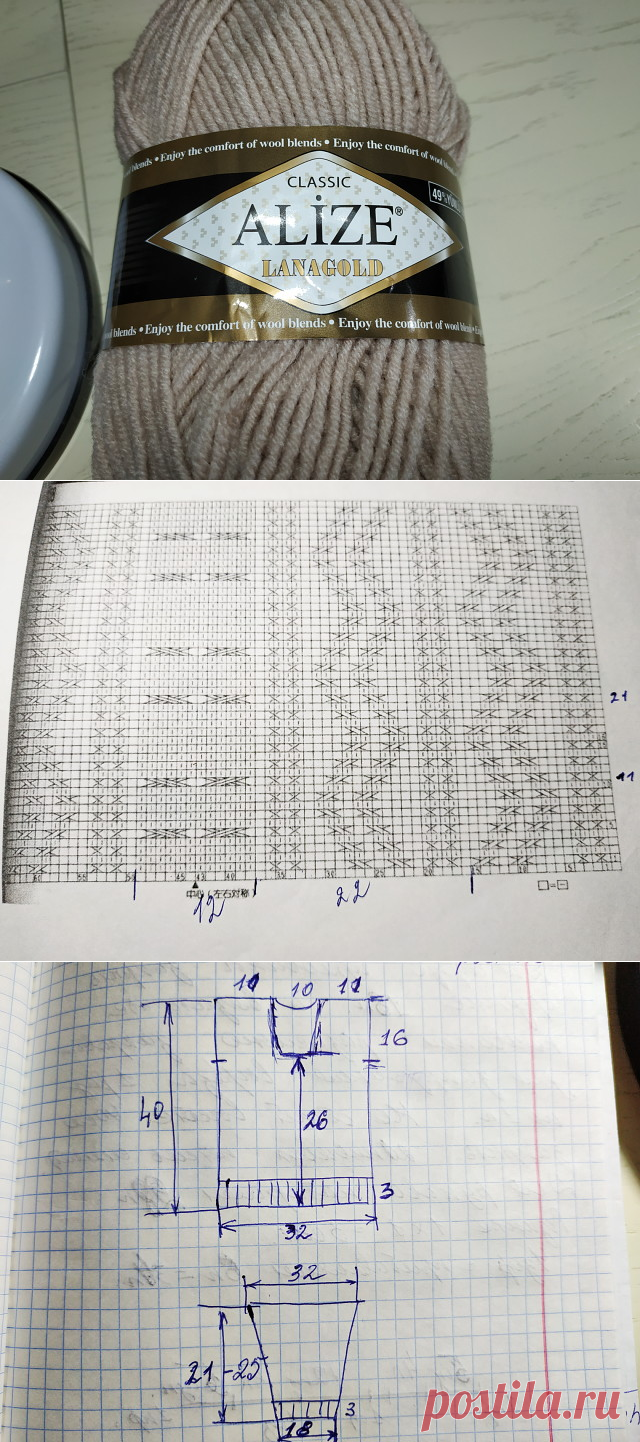 blends • Enjoy the comfort of wool blends • Enjoy the comfort of
CLASSIC
49%
ALİZE®
LANAGOLD
blends • Enjoy the comfort of wool blends • Enjoy the comfort of wool blends •
21
11
60 55 50 45 43 40 35 30 25 20 15 10 5 1
中心 (左右対称)
□=⊟
12
22
11 10 11
16
40
26
3
32
32
21-25
3
18
postila.ru